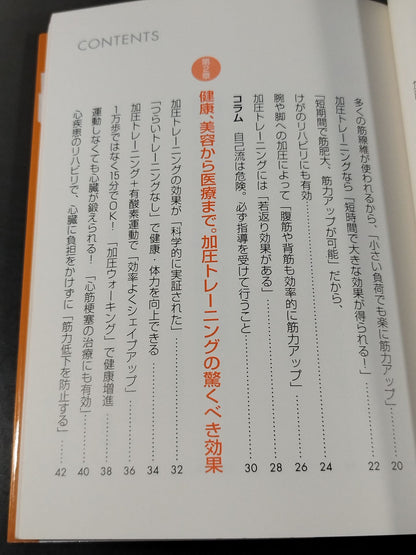 CONTENTS
多くの筋線維が使われるから、「小さい負荷でも楽に筋力アップ」 20
加圧トレーニングなら「短時間で大きな効果が得られる!」 22
「短期間で筋肥大、筋力アップが可能」だから、
けがのリハビリにも有効 24
腕や脚への加圧によって「腹筋や背筋も効率的に筋力アップ」 26
加圧トレーニングには「若返り効果がある」 28
コラム 自己流は危険。必ず指導を受けて行うこと 30
第2章
健康、美容から医療まで。加圧トレーニングの驚くべき効果
加圧トレーニングの効果が「科学的に実証された」 32
「つらいトレーニングなし」で健康、体力を向上できる 34
加圧トレーニング+有酸素運動で「効率よくシェイプアップ」 36
1万歩ではなく15分でOK!「加圧ウォーキング」で健康増進 38
運動しなくても心臓が鍛えられる!「心筋梗塞の治療にも有効」 40
心疾患のリハビリで、心臓に負担をかけずに「筋力低下を防止する」 42